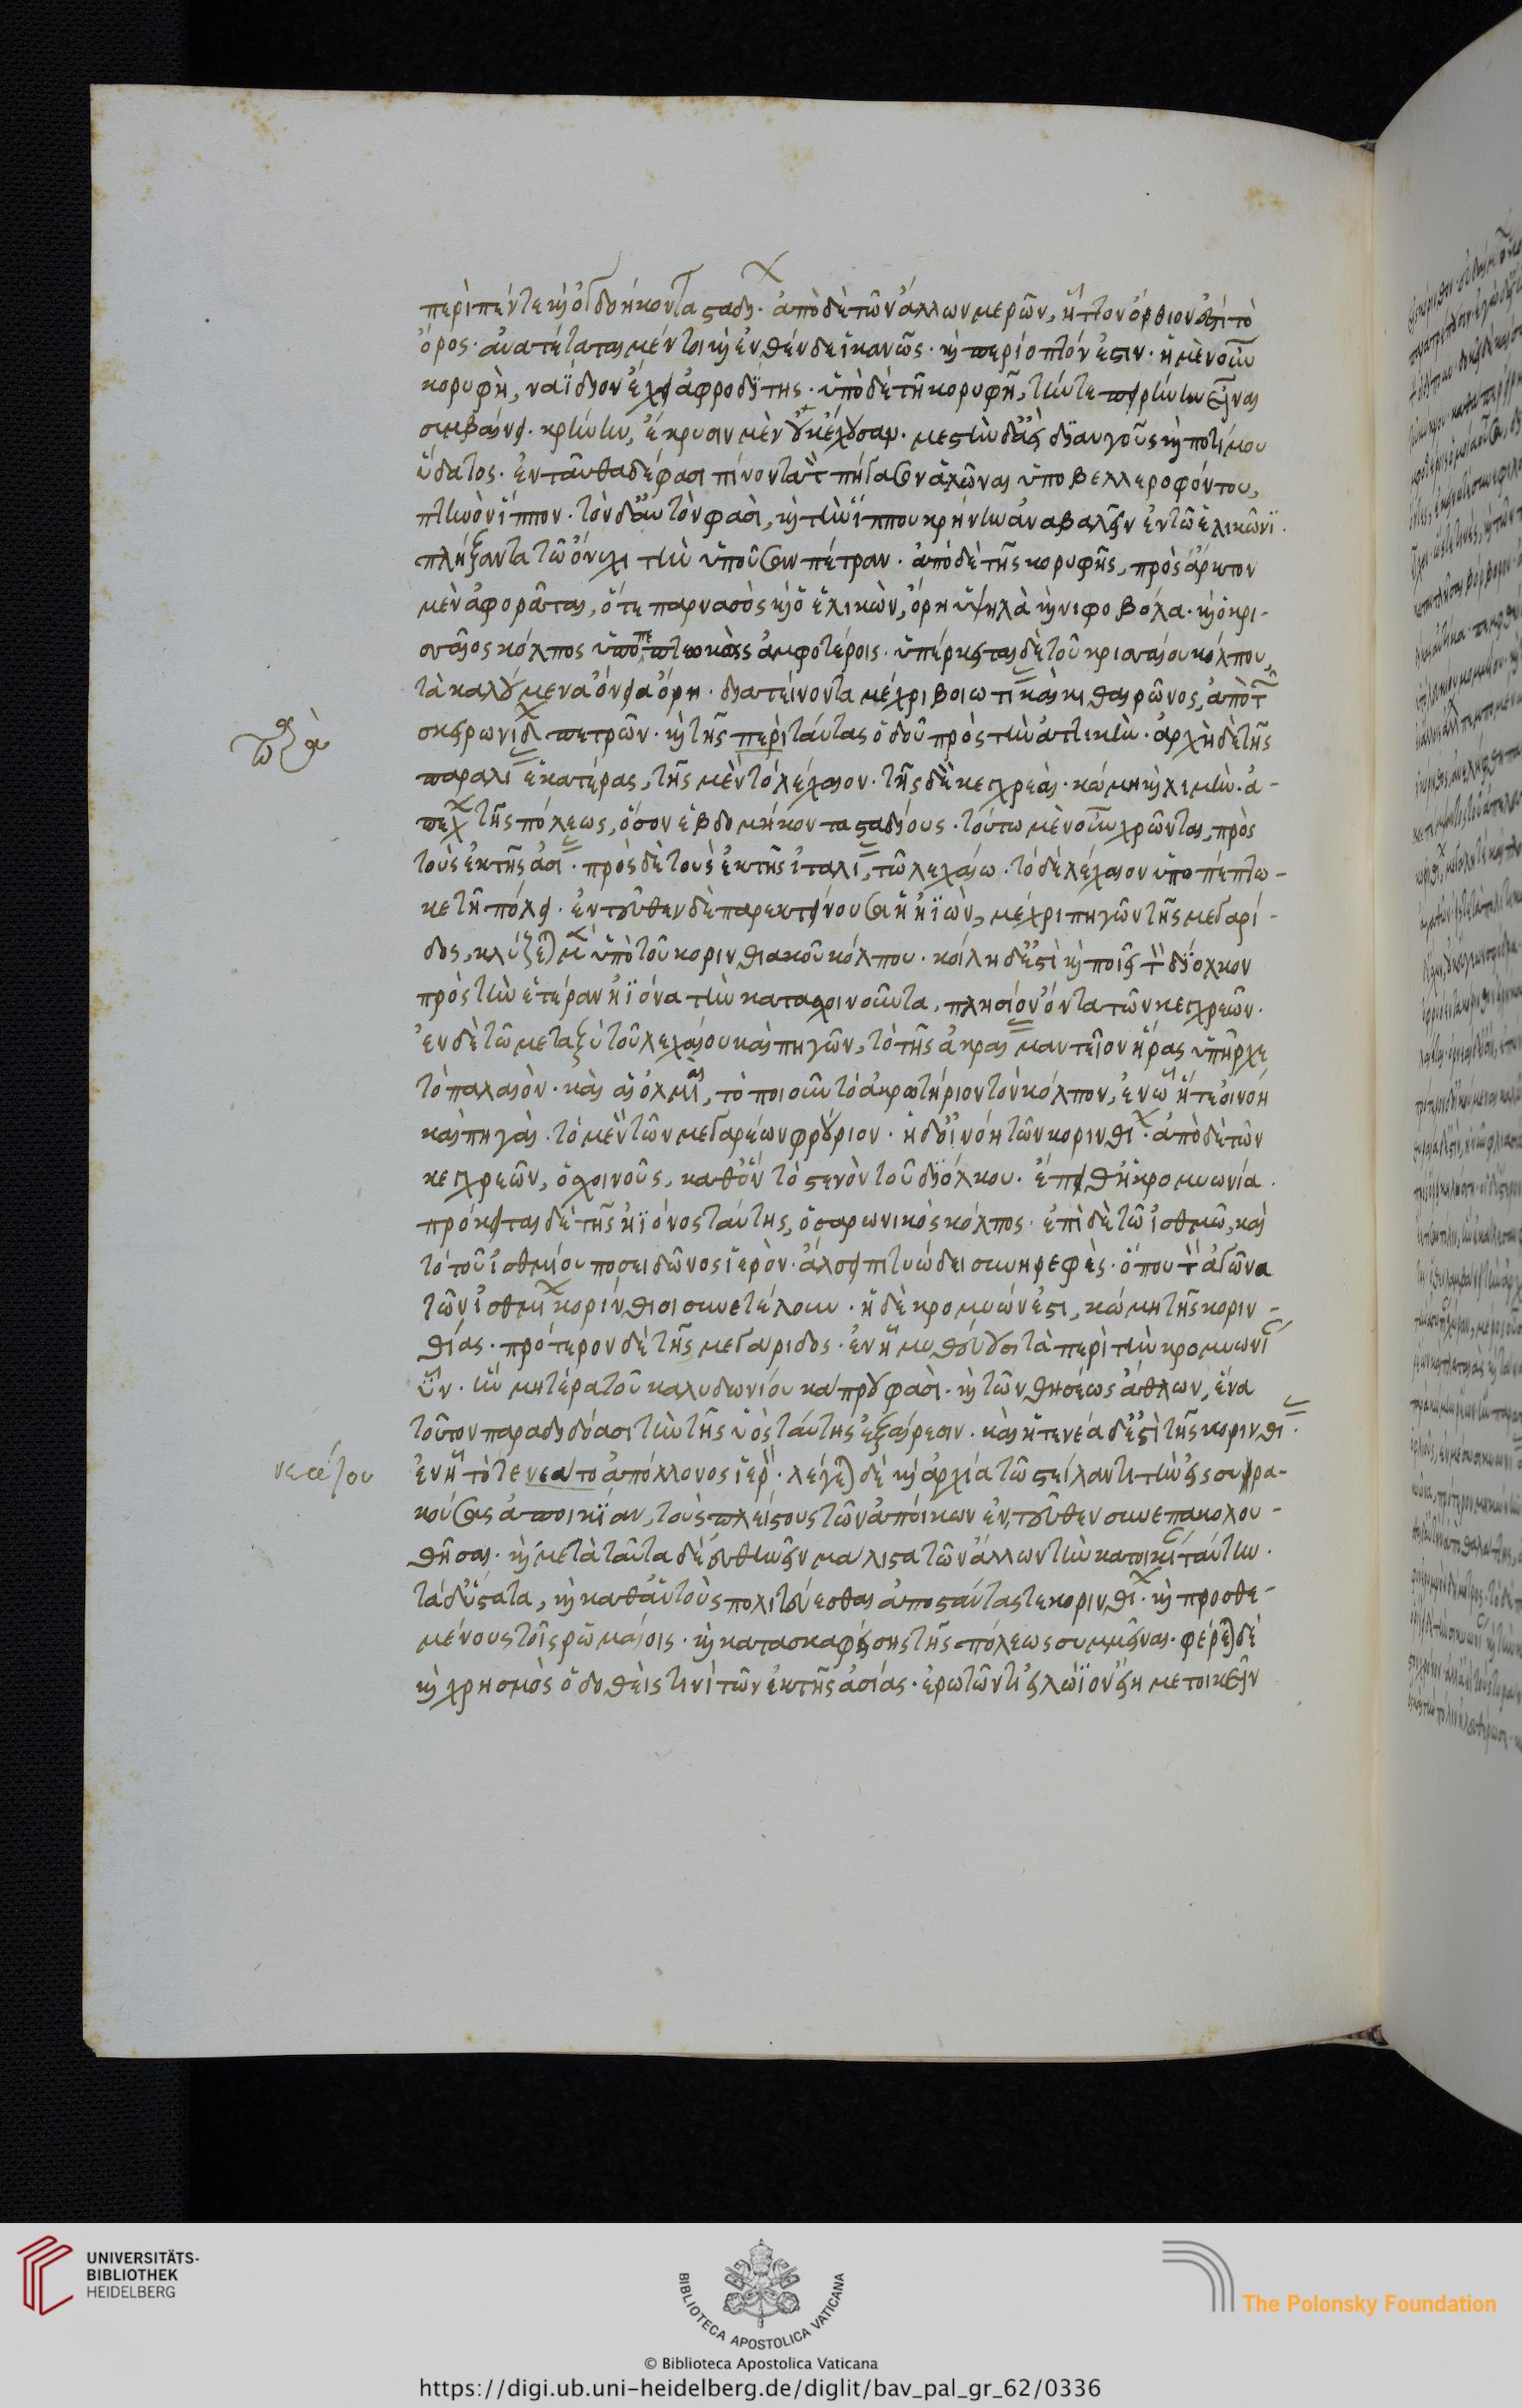 περὶ πέντε καὶ ὀγδοήκοντα σταδίων· ἀπὸ δὲ τῶν ἄλλων μερῶν, ἧττον ὄρθιον ἐπὶ τὸ
ὄρος· ἀνατέταται μέντοι καὶ ἐνθένδε ἱκανῶς· καὶ περίοπτόν ἐστιν· ἡ μὲν οὖν
κορυφὴ, ναΐδιον ἔχει ἀφροδίτης· ὑπὸ δὲ τῆ κορυφῆ, τήν τε πειρήνην εἶναι
συμβαίνει· κρήνην, ἔκρυσιν μὲν οὐκ ἔχουσαν· μεστὴν δ' ἀεὶ διαυγοῦς καὶ ποτίμου
ὕδατος· ἐνταῦθα δέ φασι πίνοντα τὸν πήγασον ἁλῶναι ὑπὸ βελλεροφόντου,
πτηνὸν ἵππον· τὸν δ' αὐτὸν φασὶ, καὶ τὴν ἵππου κρήνην ἀναβαλεῖν ἐν τῶ ἑλικῶνι
πλήξαντα τῶ ὄνυχι τὴν ὑποῦσαν πέτραν· ἀπὸ δὲ τῆς κορυφῆς, πρὸς ἄρκτον
μὲν ἀφορᾶται, ὅ τε παρνασὸς καὶ ὁ ἑλικὼν, ὄρη ὑψηλὰ καὶ νιφοβόλα· καὶ ὁ κρι-
σναῖος κόλπος ὑποπεπτωκὼς ἀμφοτέροις· ὑπέρκειται δὲ τοῦ κρισναίου κόλπου,
τὰ καλούμενα ὄνεια ὄρη· διατείνοντα μέχρι βοιωτίας καὶ κιθαιρῶνος, ἀπὸ τῶν
σκειρωνίδων πετρῶν· καὶ τῆς περὶ ταύτας ὁδοῦ πρὸς τὴν ἀττικὴν· ἀρχὴ δὲ τῆς
παραλίας ἑκατέρας, τῆς μὲν τὸ λέχαιον· τῆς δὲ κεγχρεαὶ· κώμη καὶ λιμὴν· ἀ-
πέχων τῆς πόλεως, ὅσον ἑβδομήκοντα σταδίους· τούτω μὲν οὖν χρῶνται, πρὸς
τοὺς ἐκ τῆς ἀσίας· πρὸς δὲ τοὺς ἐκ τῆς ἰταλίας, τῶ λεχαίω· τὸ δὲ λέχαιον ὑποπέπτω-
κε τῆ πόλει· ἐντεῦθεν δὲ παρεκτείνουσα ἡ ἠϊὼν, μέχρι πηγῶν τῆς μεγαρί-
δος, κλύζεται μὲν ὑπὸ τοῦ κορινθιακοῦ κόλπου· κοίλη δ' ἐστὶ καὶ ποιεῖ τὸν δίολκον
πρὸς τὴν ἑτέραν ἠϊόνα τὴν κατα σχοινοῦντα, πλησίον ὄντα τῶν κεγχρεῶν·
ἐν δὲ τῶ μεταξὺ τοῦ λεχαίου καὶ πηγῶν, τὸ τῆς ἀκραίας μαντεῖον ἥρας ὑπῆρχε
τὸ παλαιὸν· καὶ αἱ ὀλμιαὶ, τὸ ποιοῦν τὸ ἀκρωτήριον τὸν κόλπον, ἐν ὧ ἥ τε οἰνόη
καὶ πηγαὶ· τὸ μὲν τῶν μεγαρέων φρούριον· ἡ δ' οἰνόη τῶν κορινθίων· ἀπὸ δὲ τῶν
κεγχρεῶν, ὁ σχοινοῦς, καθ' ὃν τὸ στενὸν τοῦ διόλκου· ἔπειθ' ἡ κρομυωνία·
πρόκειται δὲ τῆς ἠϊόνος ταύτης, ὁ σαρωνικὸς κόλπος· ἐπὶ δὲ τῶ ἰσθμῶ, καὶ
τὸ τοῦ ἰσθμίου ποσειδῶνος ἱερὸν· ἄλσει πιτυώδει συνηρεφὲς· ὅπου τὸν ἀγῶνα
τῶν ἰσθμίων κορίνθιοι συνετέλουν· ἡ δὲ κρομυών ἐστι, κώμη τῆς κοριν-
θίας· πρότερον δὲ τῆς μεγαρίδος· ἐν ἧ μυθεύουσι τὰ περὶ τὴν κρομυωνίαν
ὗν· ἣν μητέρα τοῦ καλυδωνίου κάπρου φασὶ· καὶ τῶν θησέως ἄθλων, ἕνα
τοῦτον παραδιδόασι τὴν τῆς ὑὸς ταύτης ἐξαίρεσιν· καὶ ἡ τενέα δ' ἐστὶ τῆς κορινθίας·
νεάτου
ἐν ἧ τότε νεα το ἀπόλλονος ἱερὸν· λέγεται δὲ καὶ ἀρχία τῶ στείλαντι τὴν εἰς συρρα-
κούσας ἀποικίαν, τοὺς πλείστους τῶν ἀποίκων ἐντεῦθεν συνεπακολου-
θῆσαι· καὶ μετὰ ταῦτα δὲ εὐθηνεῖν μάλιστα τῶν ἄλλων τὴν κατοικίαν ταύτην·
τὰ δ' ὕστατα, καὶ καθ' αὑτοὺς πολιτεύεσθαι ἀποστάντας τε κορινθίων· καὶ προσθε-
μένους τοῖς ῥωμαίοις· καὶ κατασκαφείσης τῆς πόλεως συμμεῖναι· φέρεται δὲ
καὶ χρησμὸς ὁ δοθεὶς τινὶ τῶν ἐκ τῆς ἀσίας· ἐρωτῶντι εἰ λώϊον εἴη μετοικεῖν
UNIVERSITÄTS-
BIBLIOTHEK
HEIDELBERG
BIBLIOTECA APOSTOLICA VATICANA
© Biblioteca Apostolica Vaticana
The Polonsky Foundation
https://digi.ub.uni-heidelberg.de/diglit/bav_pal_gr_62/0336